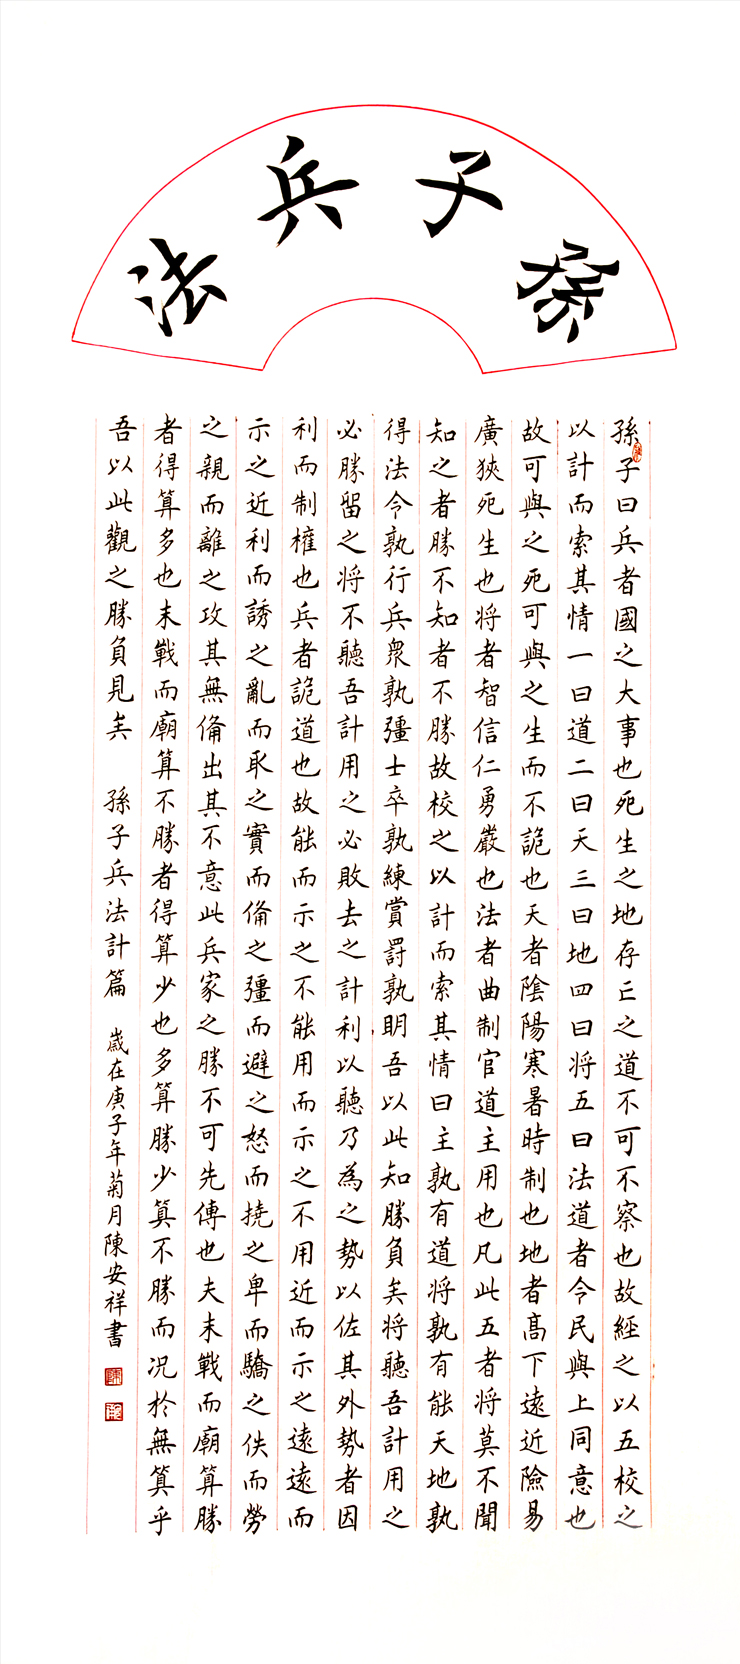 孫子兵法
孫子曰兵者國之大事也死生之地存亡之道不可不察也故經之以五校之
以計而索其情一曰道二曰天三曰地四曰将五曰法道者令民與上同意也
故可與之死可與之生而不詭也天者陰陽寒暑時制也地者高下遠近險易
廣狹死生也将者智信仁勇嚴也法者曲制官道主用也凡此五者将莫不聞
知之者勝不知者不勝故校之以計而索其情曰主孰有道将孰有能天地孰
得法令孰行兵衆孰彊士卒孰練賞罰孰明吾以此知勝負矣将聽吾計用之
必勝留之将不聽吾計用之必敗去之計利以聽乃為之勢以佐其外勢者因
利而制權也兵者詭道也故能而示之不能用而示之不用近而示之遠遠而
示之近利而誘之亂而取之實而備之彊而避之怒而撓之卑而驕之佚而勞
之親而離之攻其無備出其不意此兵家之勝不可先傳也夫未戰而廟算勝
者得算多也未戰而廟算不勝者得算少也多算勝少算不勝而况於無算乎
吾以此觀之勝負見矣 孫子兵法計篇 歲在庚子年菊月陳安祥書